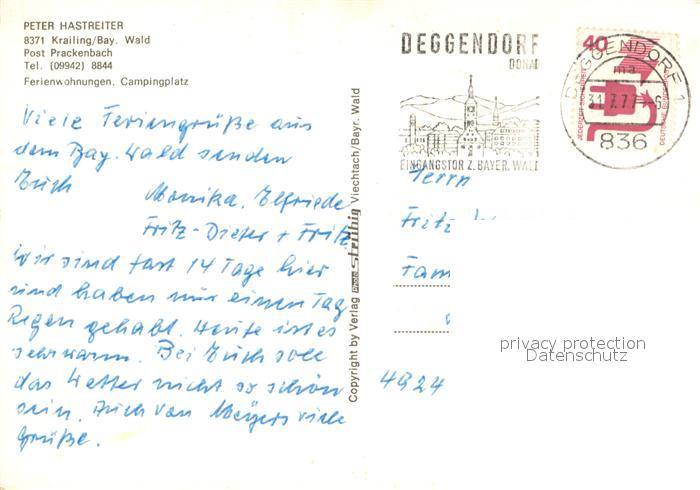 PETER HASTREITER
8371 Krailing/Bay. Wald
Post Prackenbach
Tel. (09942) 8844
Ferienwohnungen, Campingplatz
Viele Feriengrüße aus
dem Bay. Wald senden
Euch
Monika, Elfriede
Fritz-Dieter + Fritz
Wir sind fast 14 Tage hier
und haben nur einen Tag
Regen gehabt. Heute ist es
sehr warm. Bei Euch soll
das Wetter nicht so schön
sein. Auch von Meyers viele
Grüße.
Copyright by Verlag Foto Strühig Viechtach/Bayr. Wald
DEGGENDORF
DONAU
EINGANGSTOR Z. BAYER. WALD
40
JEDERZEIT SICHERHEIT
DEUTSCHE BUNDESPOST
DEGGENDORF 1
ma
31.7.77-6
836
Herrn
Fritz
Fam
4924
privacy protection
Datenschutz